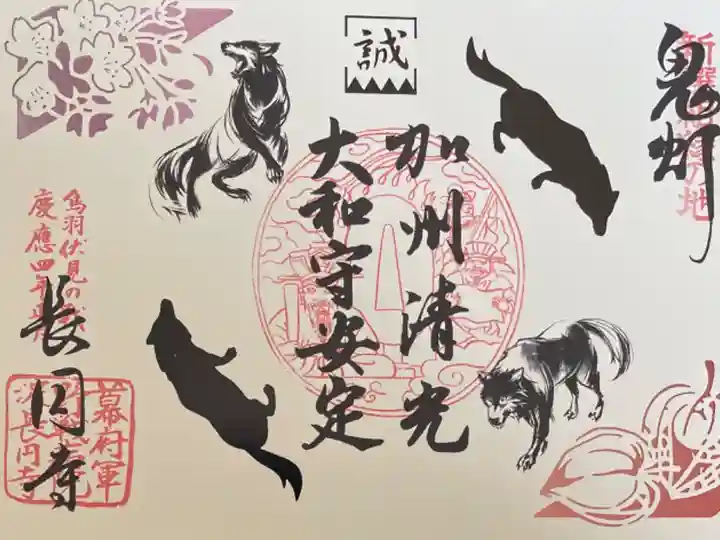 鬼灯
新選組ゆかりの地
誠
加州清光
大和守安定
鳥羽伏見の戦い
慶應四年
長円寺
幕府軍
淀長円寺